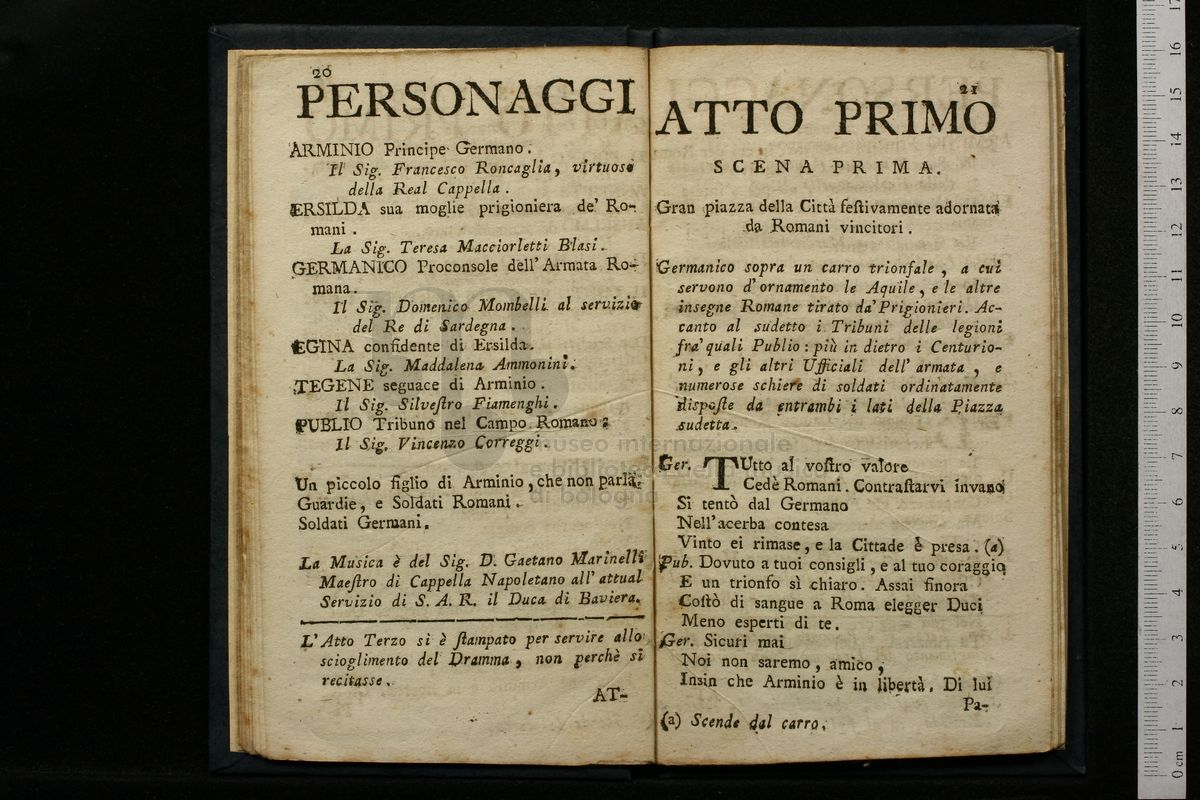 20
PERSONAGGI
ARMINIO Principe Germano.
Il Sig. Francesco Roncaglia, virtuoso
della Real Cappella.
ERSILDA sua moglie prigioniera de' Ro-
mani.
La Sig. Teresa Macciorletti Blasi.
GERMANICO Proconsole dell'Armata Ro-
mana.
Il Sig. Domenico Mombelli al servizio
del Re di Sardegna.
EGINA confidente di Ersilda.
La Sig. Maddalena Ammonini.
TEGENE seguace di Arminio.
Il Sig. Silveſtro Fiamenghi.
PUBLIO Tribuno nel Campo Romano.
Il Sig. Vincenzo Correggi.
Un piccolo figlio di Arminio, che non parla.
Guardie, e Soldati Romani.
Soldati Germani.
La Musica è del Sig. D. Gaetano Marinelli
Maeſtro di Cappella Napoletano all'attual
Servizio di S. A. R. il Duca di Baviera.
L'Atto Terzo si è ſtampato per servire allo
scioglimento del Dramma, non perchè si
recitasse.
AT-
21
ATTO PRIMO
SCENA PRIMA.
Gran piazza della Città feſtivamente adornata
da Romani vincitori.
Germanico sopra un carro trionfale, a cui
servono d'ornamento le Aquile, e le altre
insegne Romane tirato da' Prigionieri. Ac-
canto al sudetto i Tribuni delle legioni
fra' quali Publio: più in dietro i Centurio-
ni, e gli altri Ufficiali dell'armata, e
numerose schiere di soldati ordinatamente
dispoſte da entrambi i lati della Piazza
sudetta.
Ger. TUtto al voſtro valore
Cedè Romani. Contraſtarvi invano
Si tentò dal Germano
Nell'acerba contesa
Vinto ei rimase, e la Cittade è presa. (a)
Pub. Dovuto a tuoi consigli, e al tuo coraggio
E un trionfo sì chiaro. Assai finora
Coſtò di sangue a Roma elegger Duci
Meno esperti di te.
Ger. Sicuri mai
Noi non saremo, amico,
Insin che Arminio è in libertà. Di lui
Pa-
(a) Scende dal carro.
museo internazionale
e biblioteca della musica
di bologna
0 cm 1 2 3 4 5 6 7 8 9 10 11 12 13 14 15 16 17